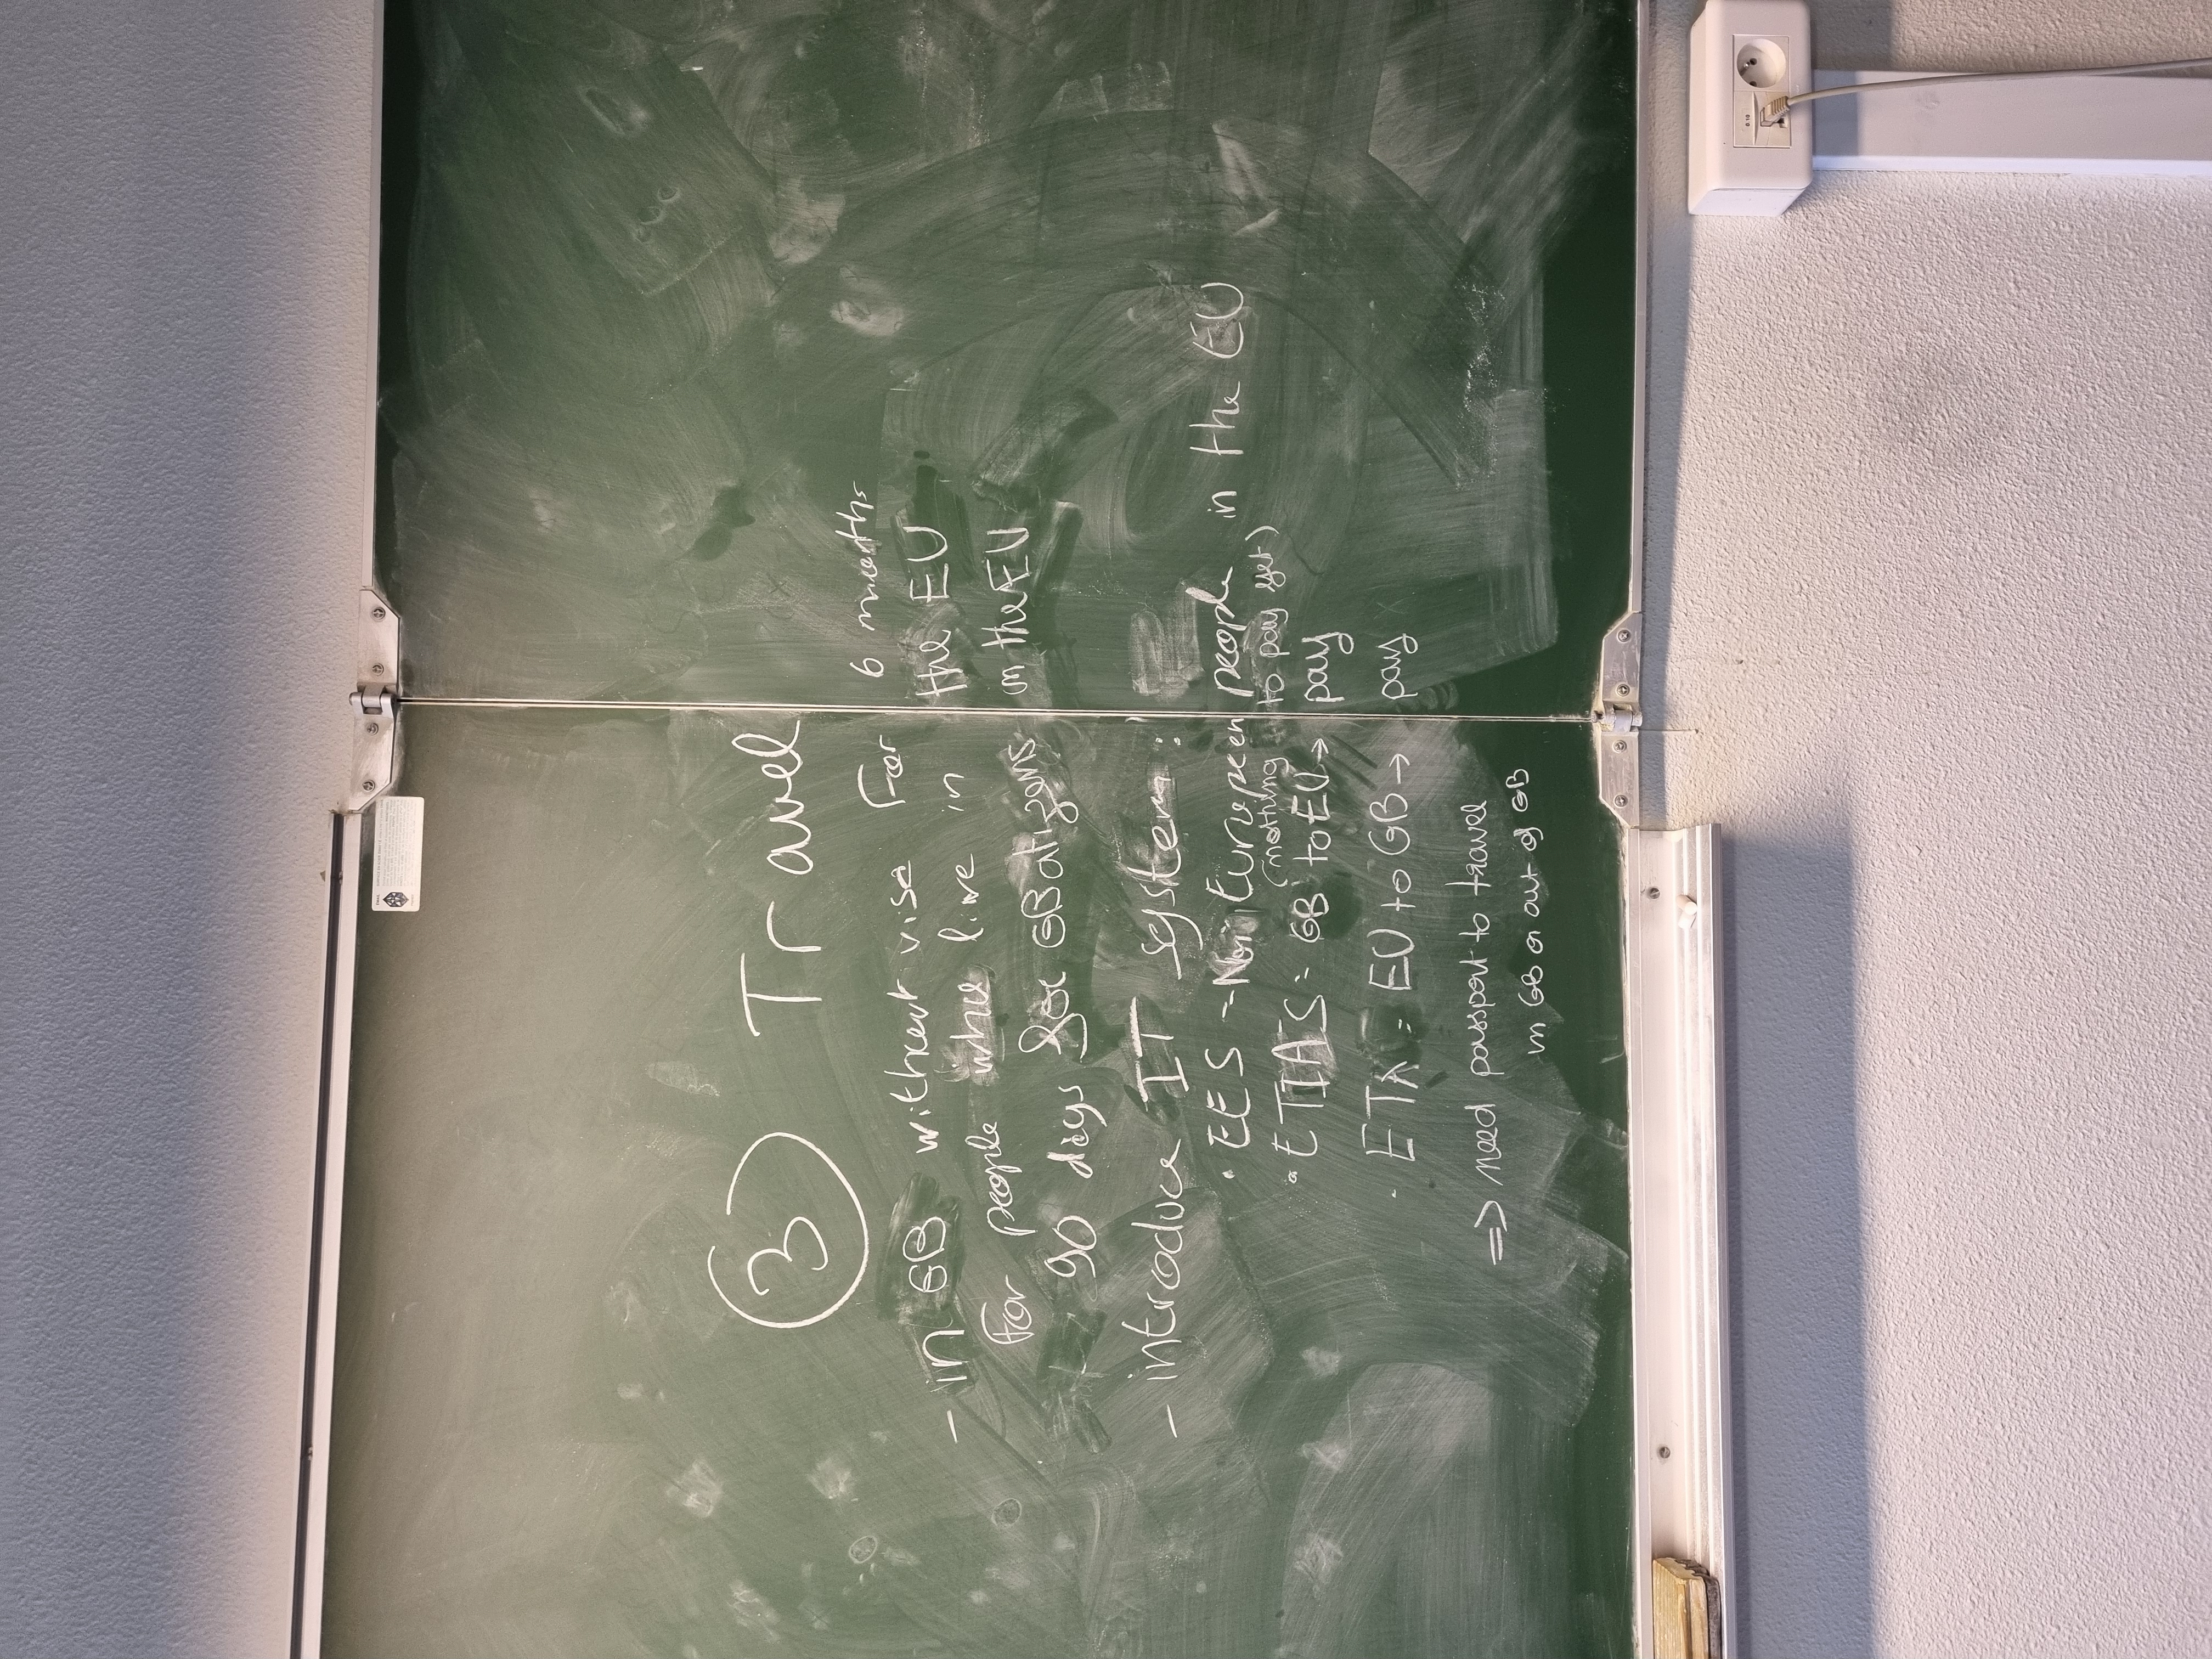 ③ Travel
- in GB without visa For 6 months
For people who live in the EU
90 days for GB citizens in the EU
- introduce IT system :
• EES - Non European people in the EU
(nothing to pay yet)
• ETIAS : GB to EU → pay
• ETA : EU to GB → pay
=> need passport to travel
in GB or out of GB